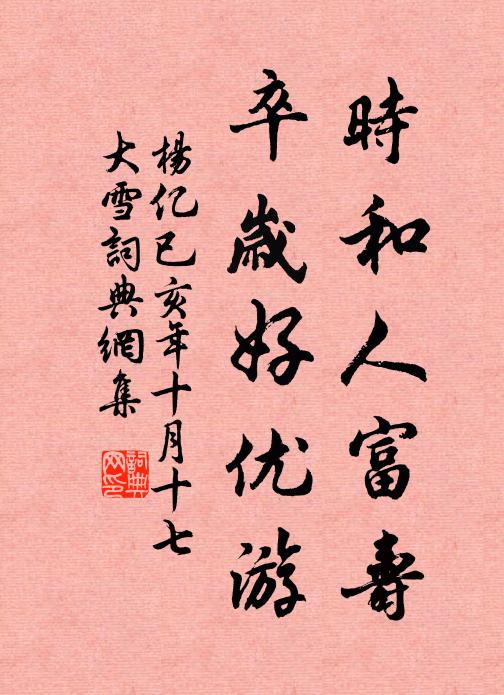 時和人富壽
卒歲好优游
楊亿己亥年十月十七
大雪詞典網集
詞典网印